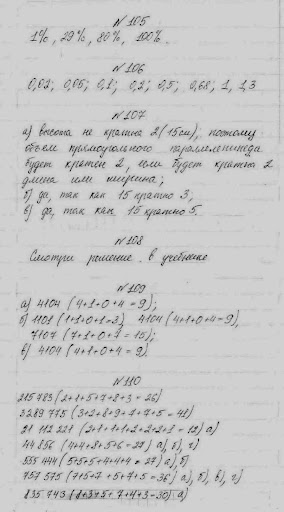 №105
1%, 29%, 80%, 100%.
№106
0,02; 0,05; 0,1; 0,2; 0,5; 0,68; 1, 1,3
№107
а) высота не кратна 2 (15см), поэтому
объем прямоугольного параллелепипеда
будет кратен 2, если будет кратна 2
длина или ширина;
б) да, так как 15 кратно 3;
в) да, так как 15 кратно 5.
№108
Смотри решение в учебнике
№109
а) 4104 (4+1+0+4=9);
б) 1101 (1+1+0+1=3), 4104 (4+1+0+4=9),
7107 (7+1+0+7=15);
в) 4104 (4+1+0+4=9).
№110
215783 (2+1+5+7+8+3=26)
3289775 (3+2+8+9+7+7+5=41)
21 112 221 (2+1+1+1+2+2+2+1=12) а)
44856 (4+4+8+5+6=27) а), б), г)
555444 (5+5+5+4+4+4=27) а), б)
757575 (7+5+7+5+7+5=36) а), б), в), г)
835743 (8+3+5+7+4+3=30) а)